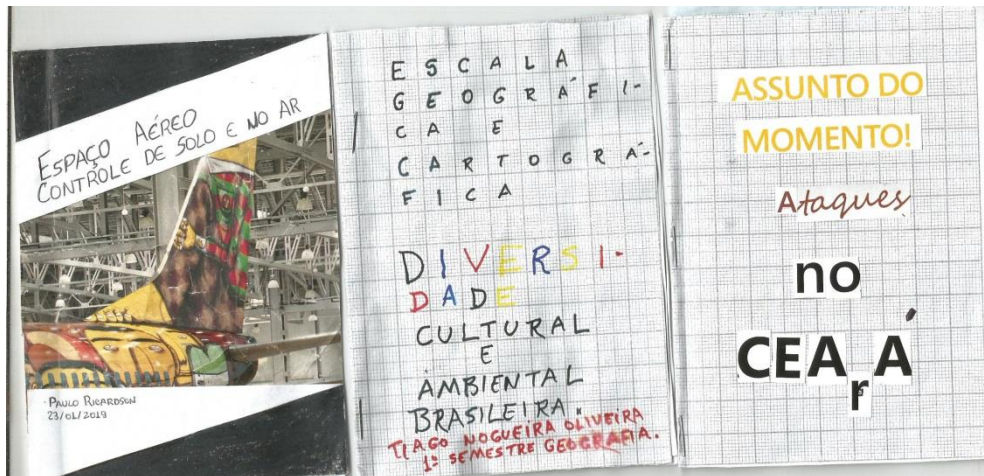 ESPAÇO AÉREO
CONTROLE DE SOLO E NO AR
PAULO RICARDSON
23/01/2019
ESCALA
GEOGRÁFI-
CA E
CARTOGRÁ-
FICA
DIVERSI-
DADE
CULTURAL
E
AMBIENTAL
BRASILEIRA.
TIAGO NOGUEIRA OLIVEIRA
1º SEMESTRE GEOGRAFIA.
ASSUNTO DO
MOMENTO!
Ataques
no
CEArÁ